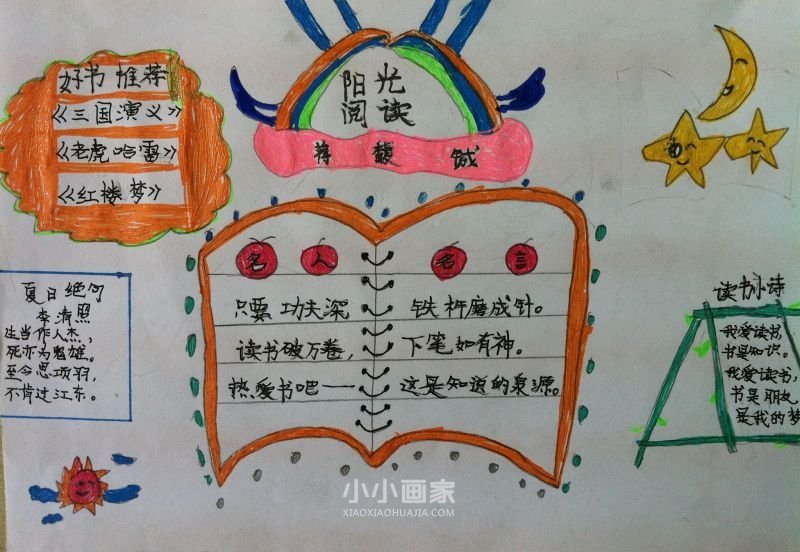 好书推荐
《三国演义》
《老虎哈雷》
《红楼梦》
阳光
阅读
蒋馥
名人名言
只要功夫深 铁杵磨成针。
读书破万卷, 下笔如有神。
热爱书吧—— 这是知道的泉源。
夏日绝句
李清照
生当作人杰,
死亦为鬼雄。
至今思项羽,
不肯过江东。
读书小诗
我爱读书,
书是知识。
我爱读书,
书是朋友
是我的梦
小小画家
XIAOXIAOHUAJIA.COM